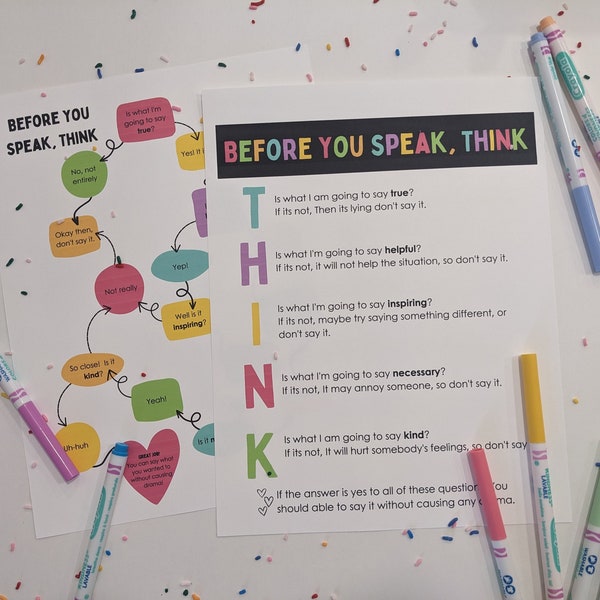 BEFORE YOU
SPEAK, THINK
Is what I'm
going to say
true?
No, not
entirely
Okay then,
don't say it.
Yep!
Not really
Well is it
inspiring?
So close! Is it
kind?
Yeah!
Uh-huh
Is it
GREAT JOB!
You can say what
you wanted to
without causing
drama!
BEFORE YOU SPEAK, THINK
T
Is what I am going to say true?
If its not, Then its lying don't say it.
H
Is what I'm going to say helpful?
If its not, it will not help the situation, so don't say it.
I
Is what I'm going to say inspiring?
If its not, maybe try saying something different, or
don't say it.
N
Is what I'm going to say necessary?
If its not, It may annoy someone, so don't say it.
K
Is what I am going to say kind?
If its not, It will hurt somebody's feelings, so don't say
If the answer is yes to all of these You
should able to say it without causing any
Crayola
WASHABLE
WASHABLE
WASHABLE